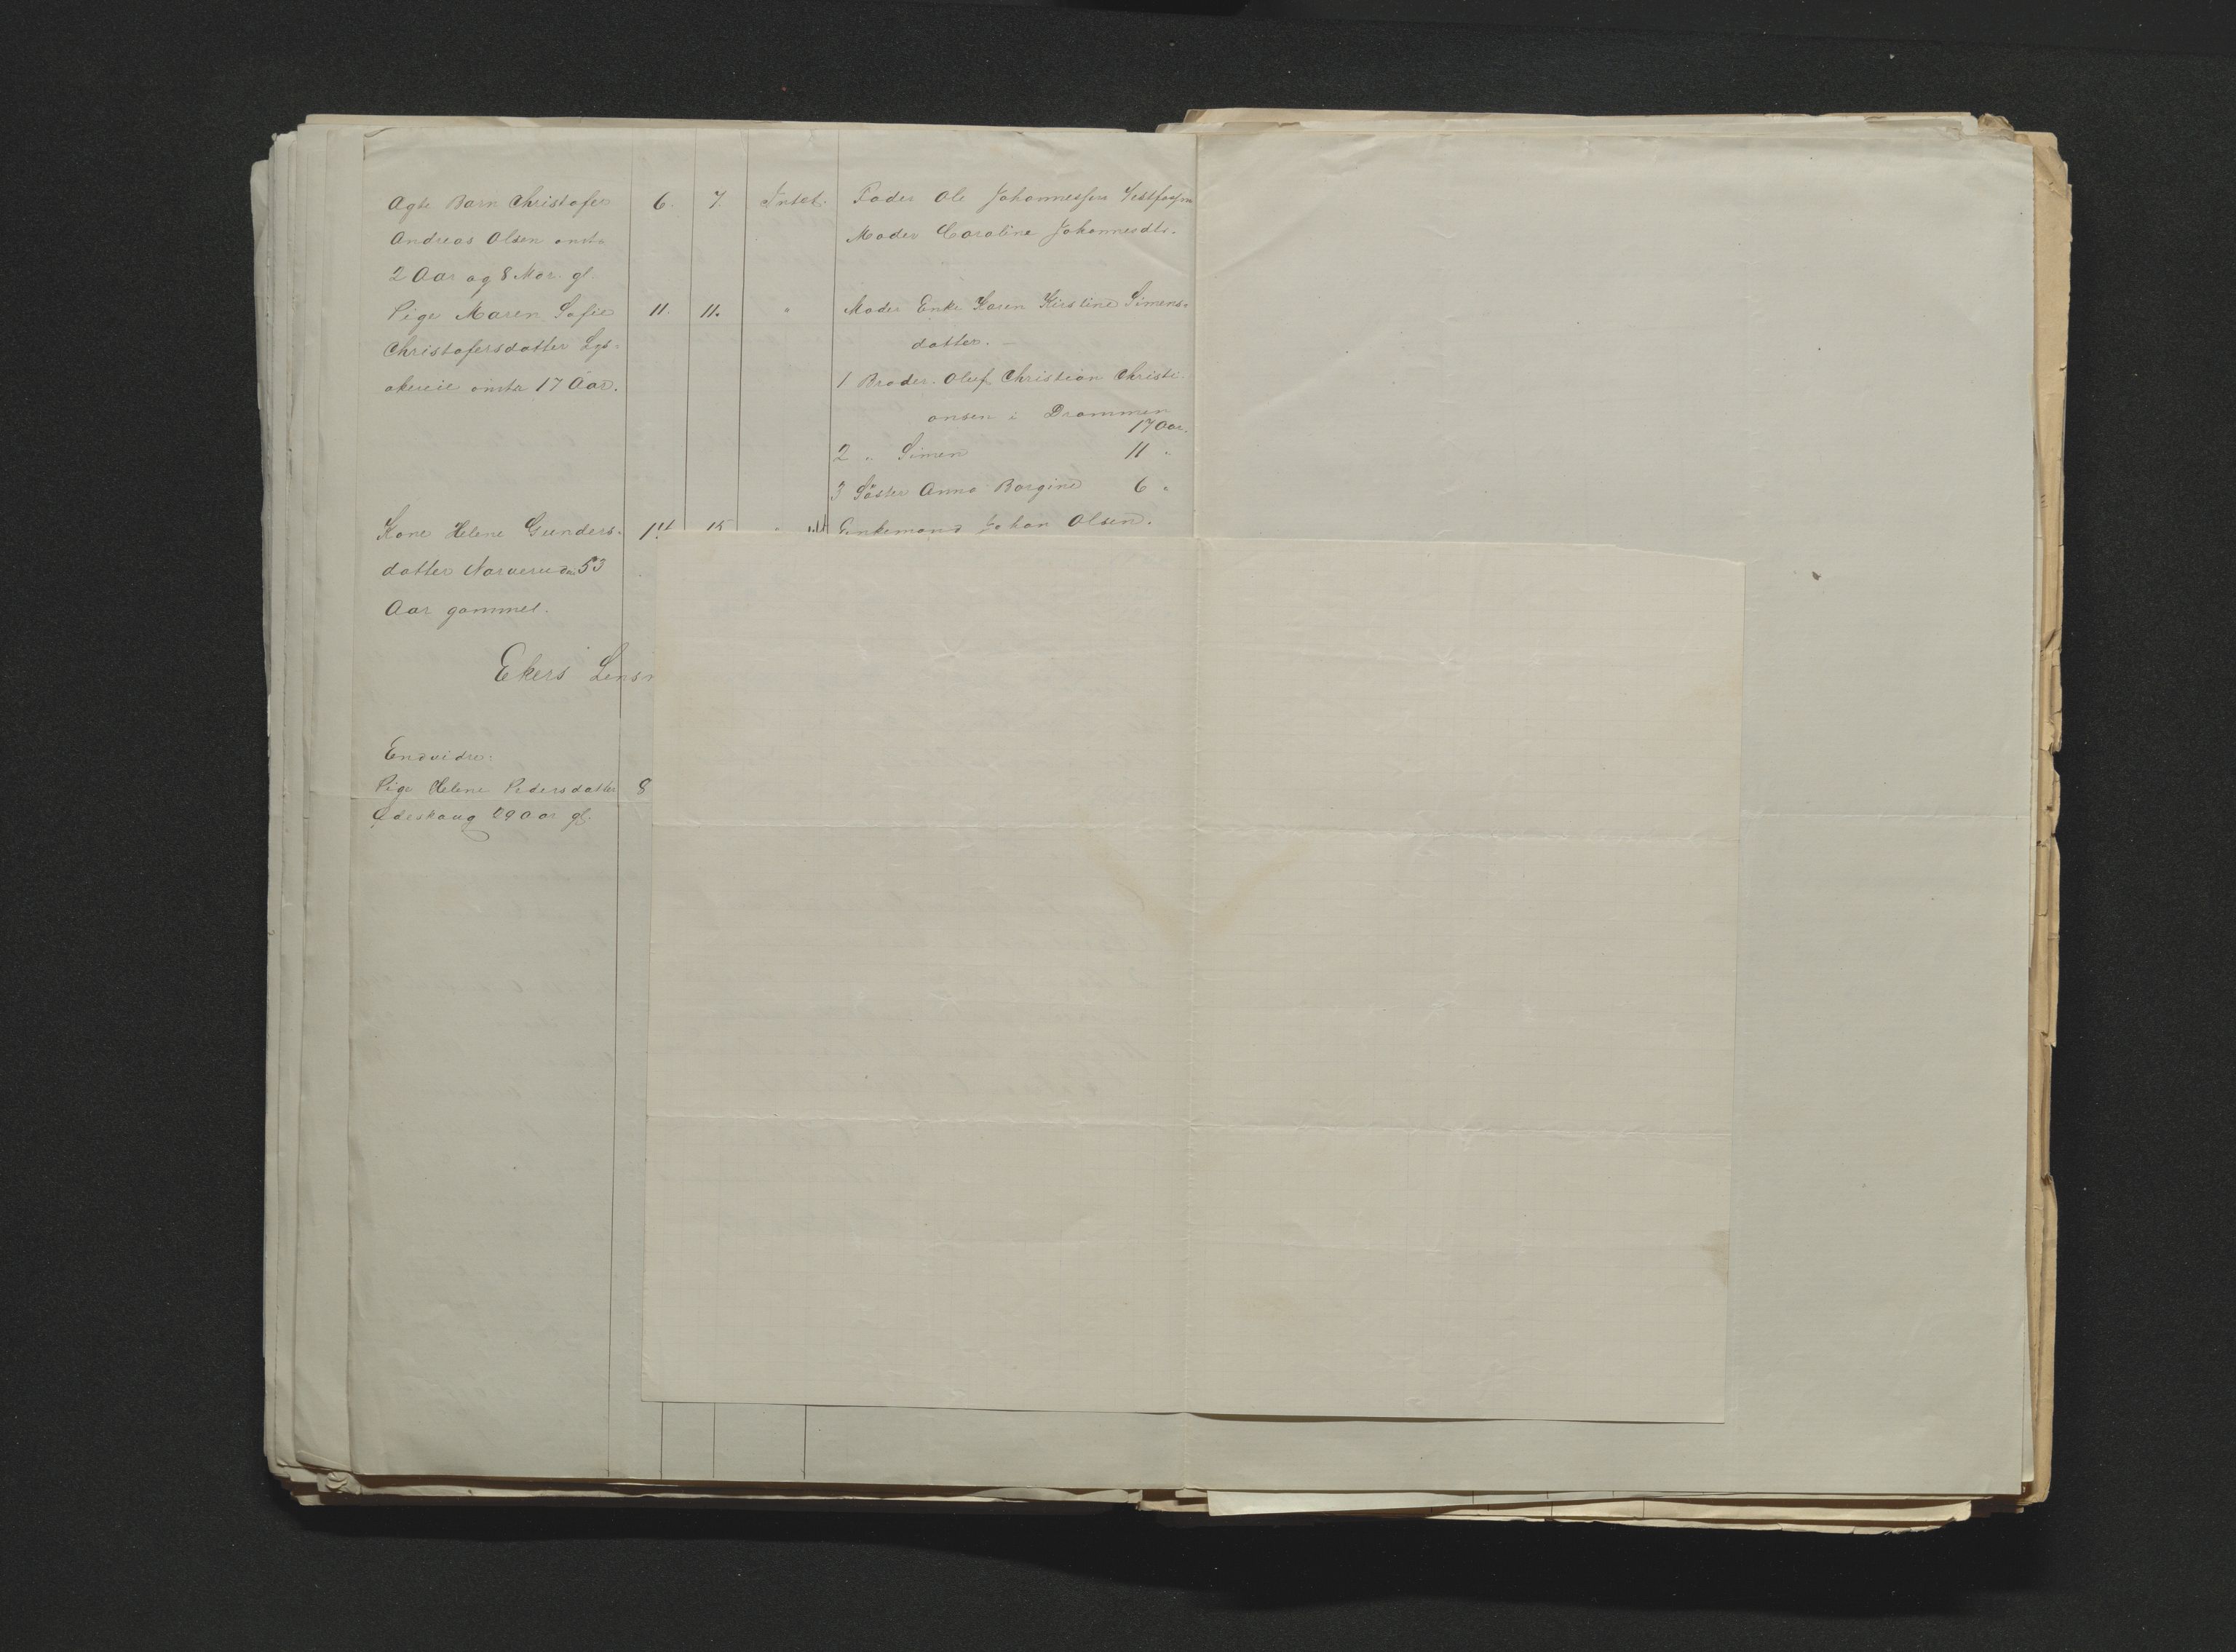 Ægte Barn Christofer 6. 7. Intet. Fader Ole Johannessen Vestfossen
Andreas Olsen omtr. Moder Caroline Johannesdtr.
2 Aar og 8 Mdr. gl.
Pige Maren Sofie 11. 11. " Moder Enke Karen Kirstine Simens-
Christofersdatter datter. —
omtr 17 Aar. 1 Broder. Oluf Christian Christi-
ansen i Drammen
17 Aar.
2 " Simen 11 "
3 Søster Anna Borgine 6 "
Kone Helene Gunders- 14 15 " Enkemand Johan Olsen.
datter 53
Aar gammel.
Ekers Lensm
Endvidre:
Pige Helene Pedersdatter 8
Ødeskaug 29 Aar gl.